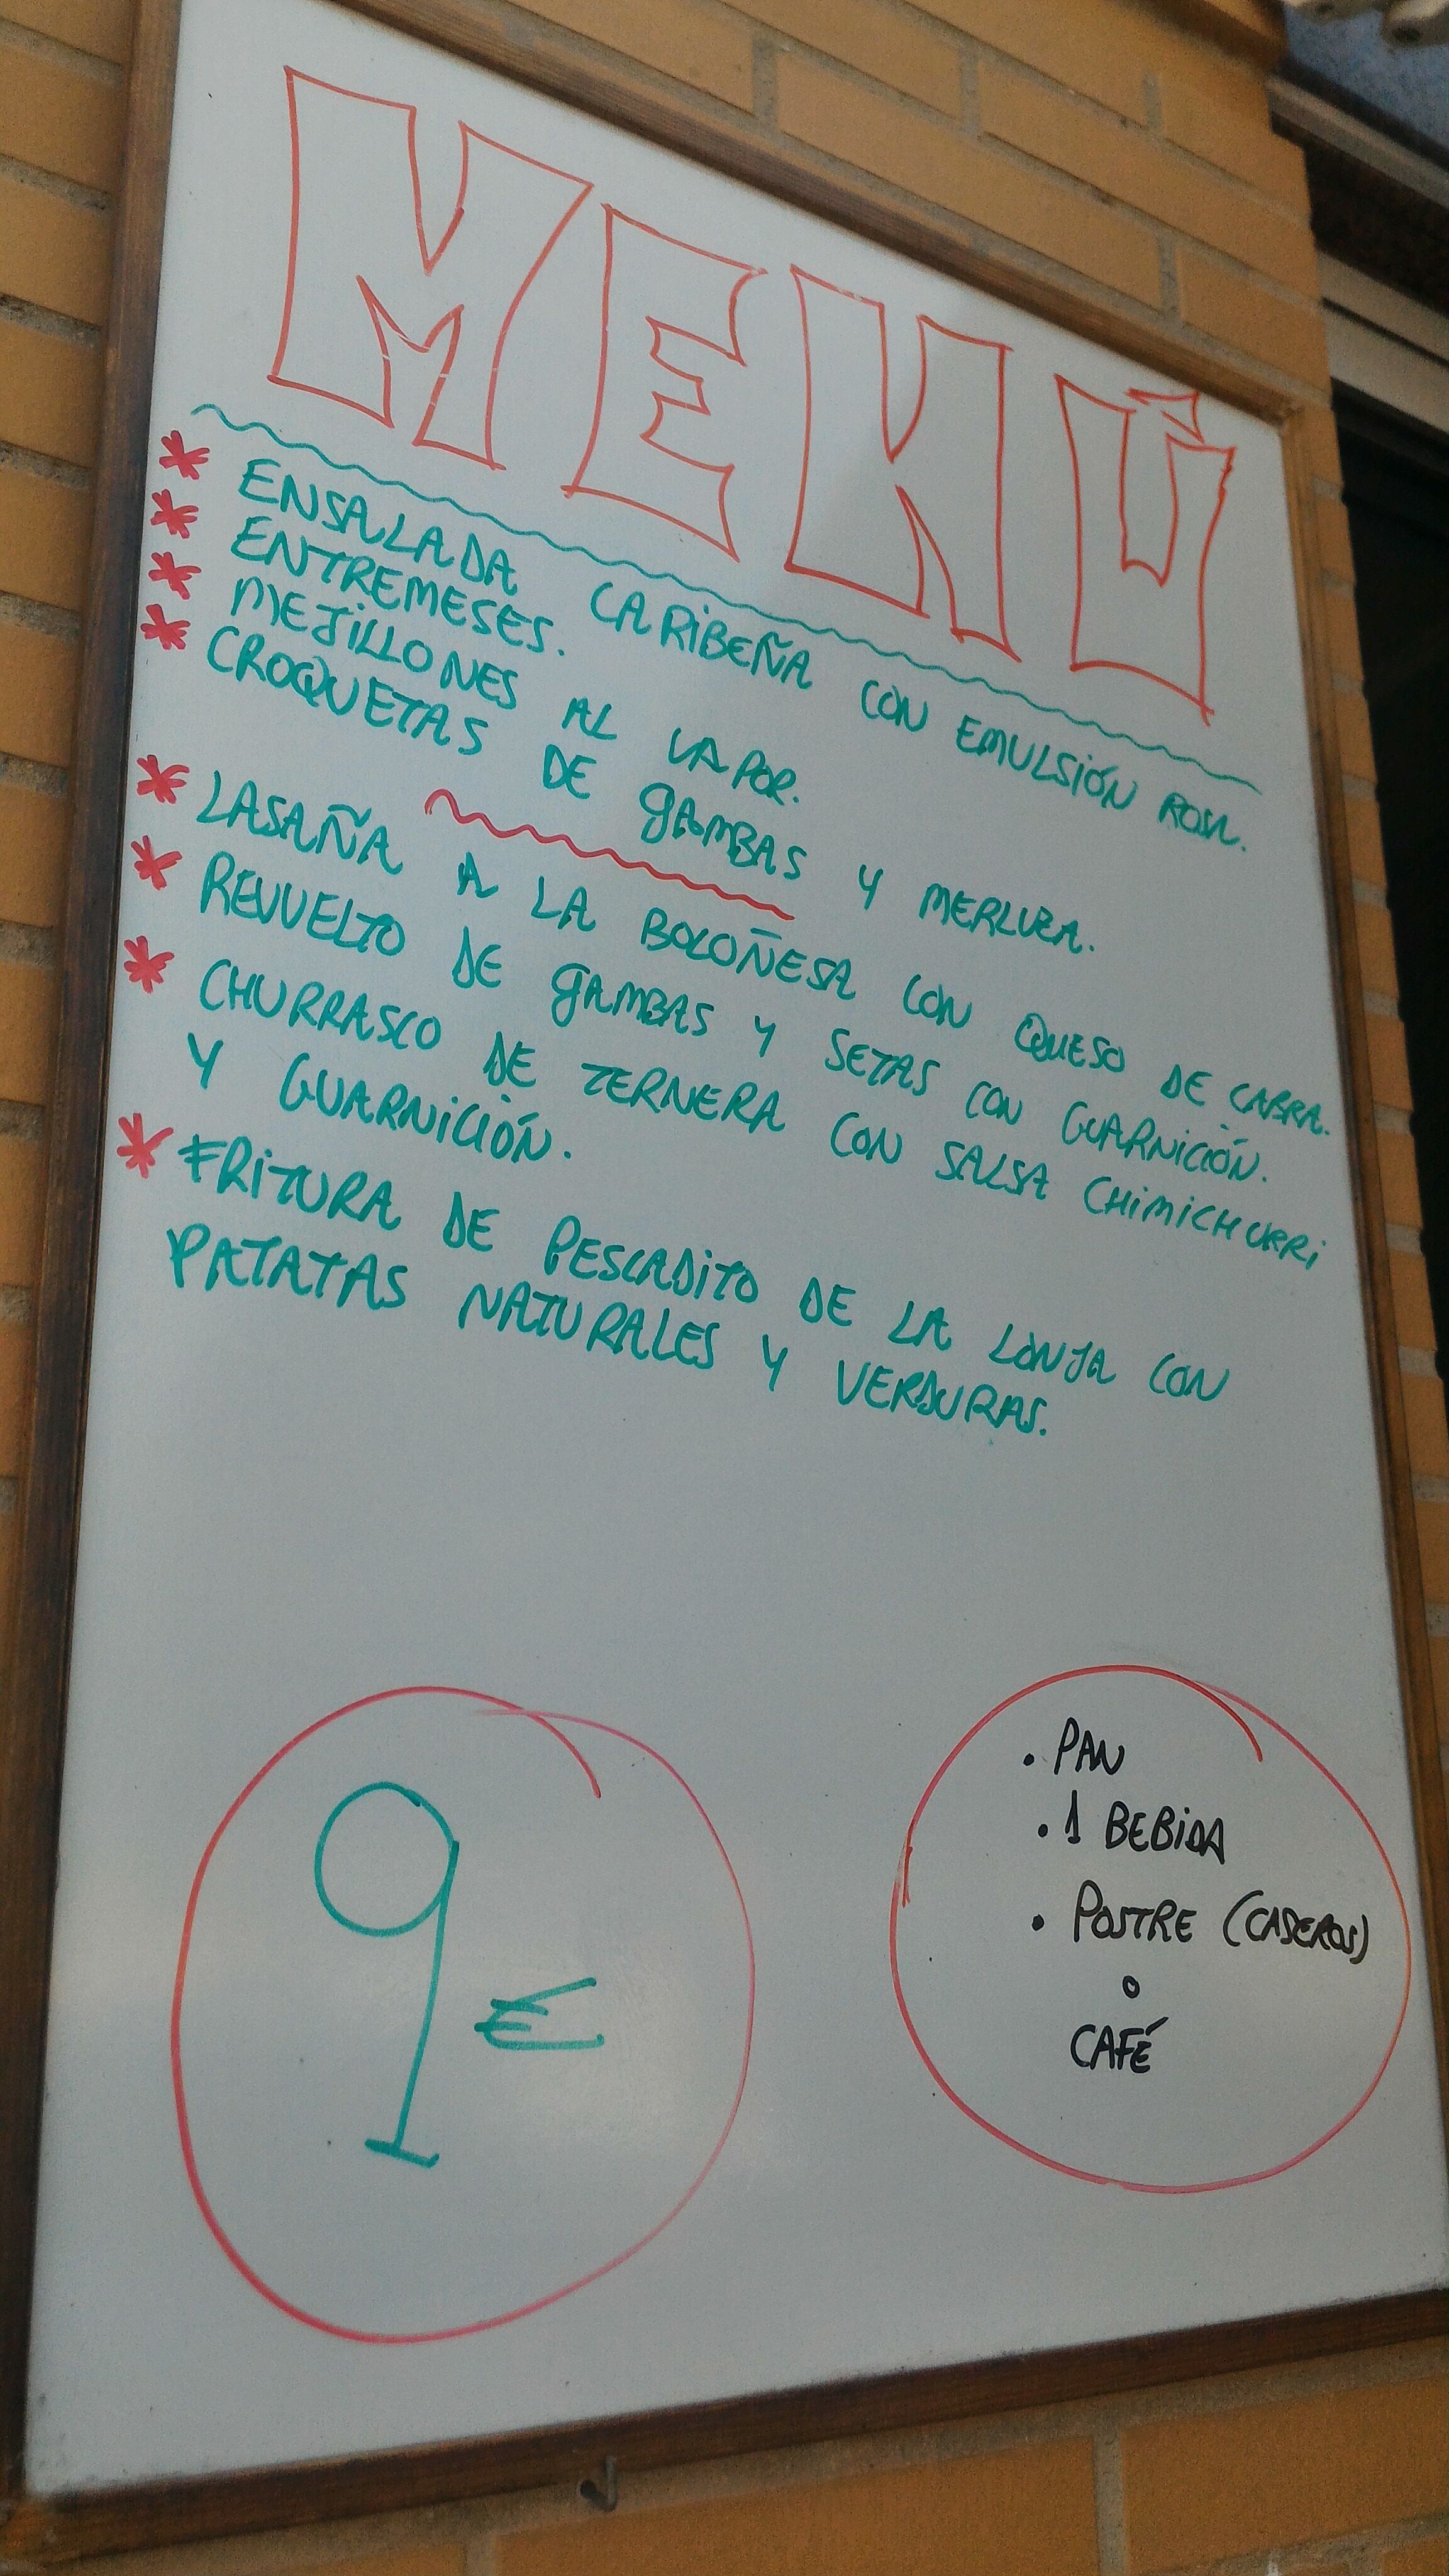 MENÚ
* ENSALADA CARIBEÑA CON EMULSIÓN ROSA.
* ENTREMESES.
* MEJILLONES AL VAPOR.
* CROQUETAS DE GAMBAS Y MERLUZA.
* LASAÑA A LA BOLOÑESA CON QUESO DE CABRA.
* REVUELTO DE GAMBAS Y SETAS CON GUARNICIÓN.
* CHURRASCO DE TERNERA CON SALSA CHIMICHURRI
Y GUARNICIÓN.
* FRITURA DE PESCADITO DE LA LONJA CON
PATATAS NATURALES Y VERDURAS.
9 €
. PAN
. 1 BEBIDA
. POSTRE (CASEROS)
o
CAFÉ